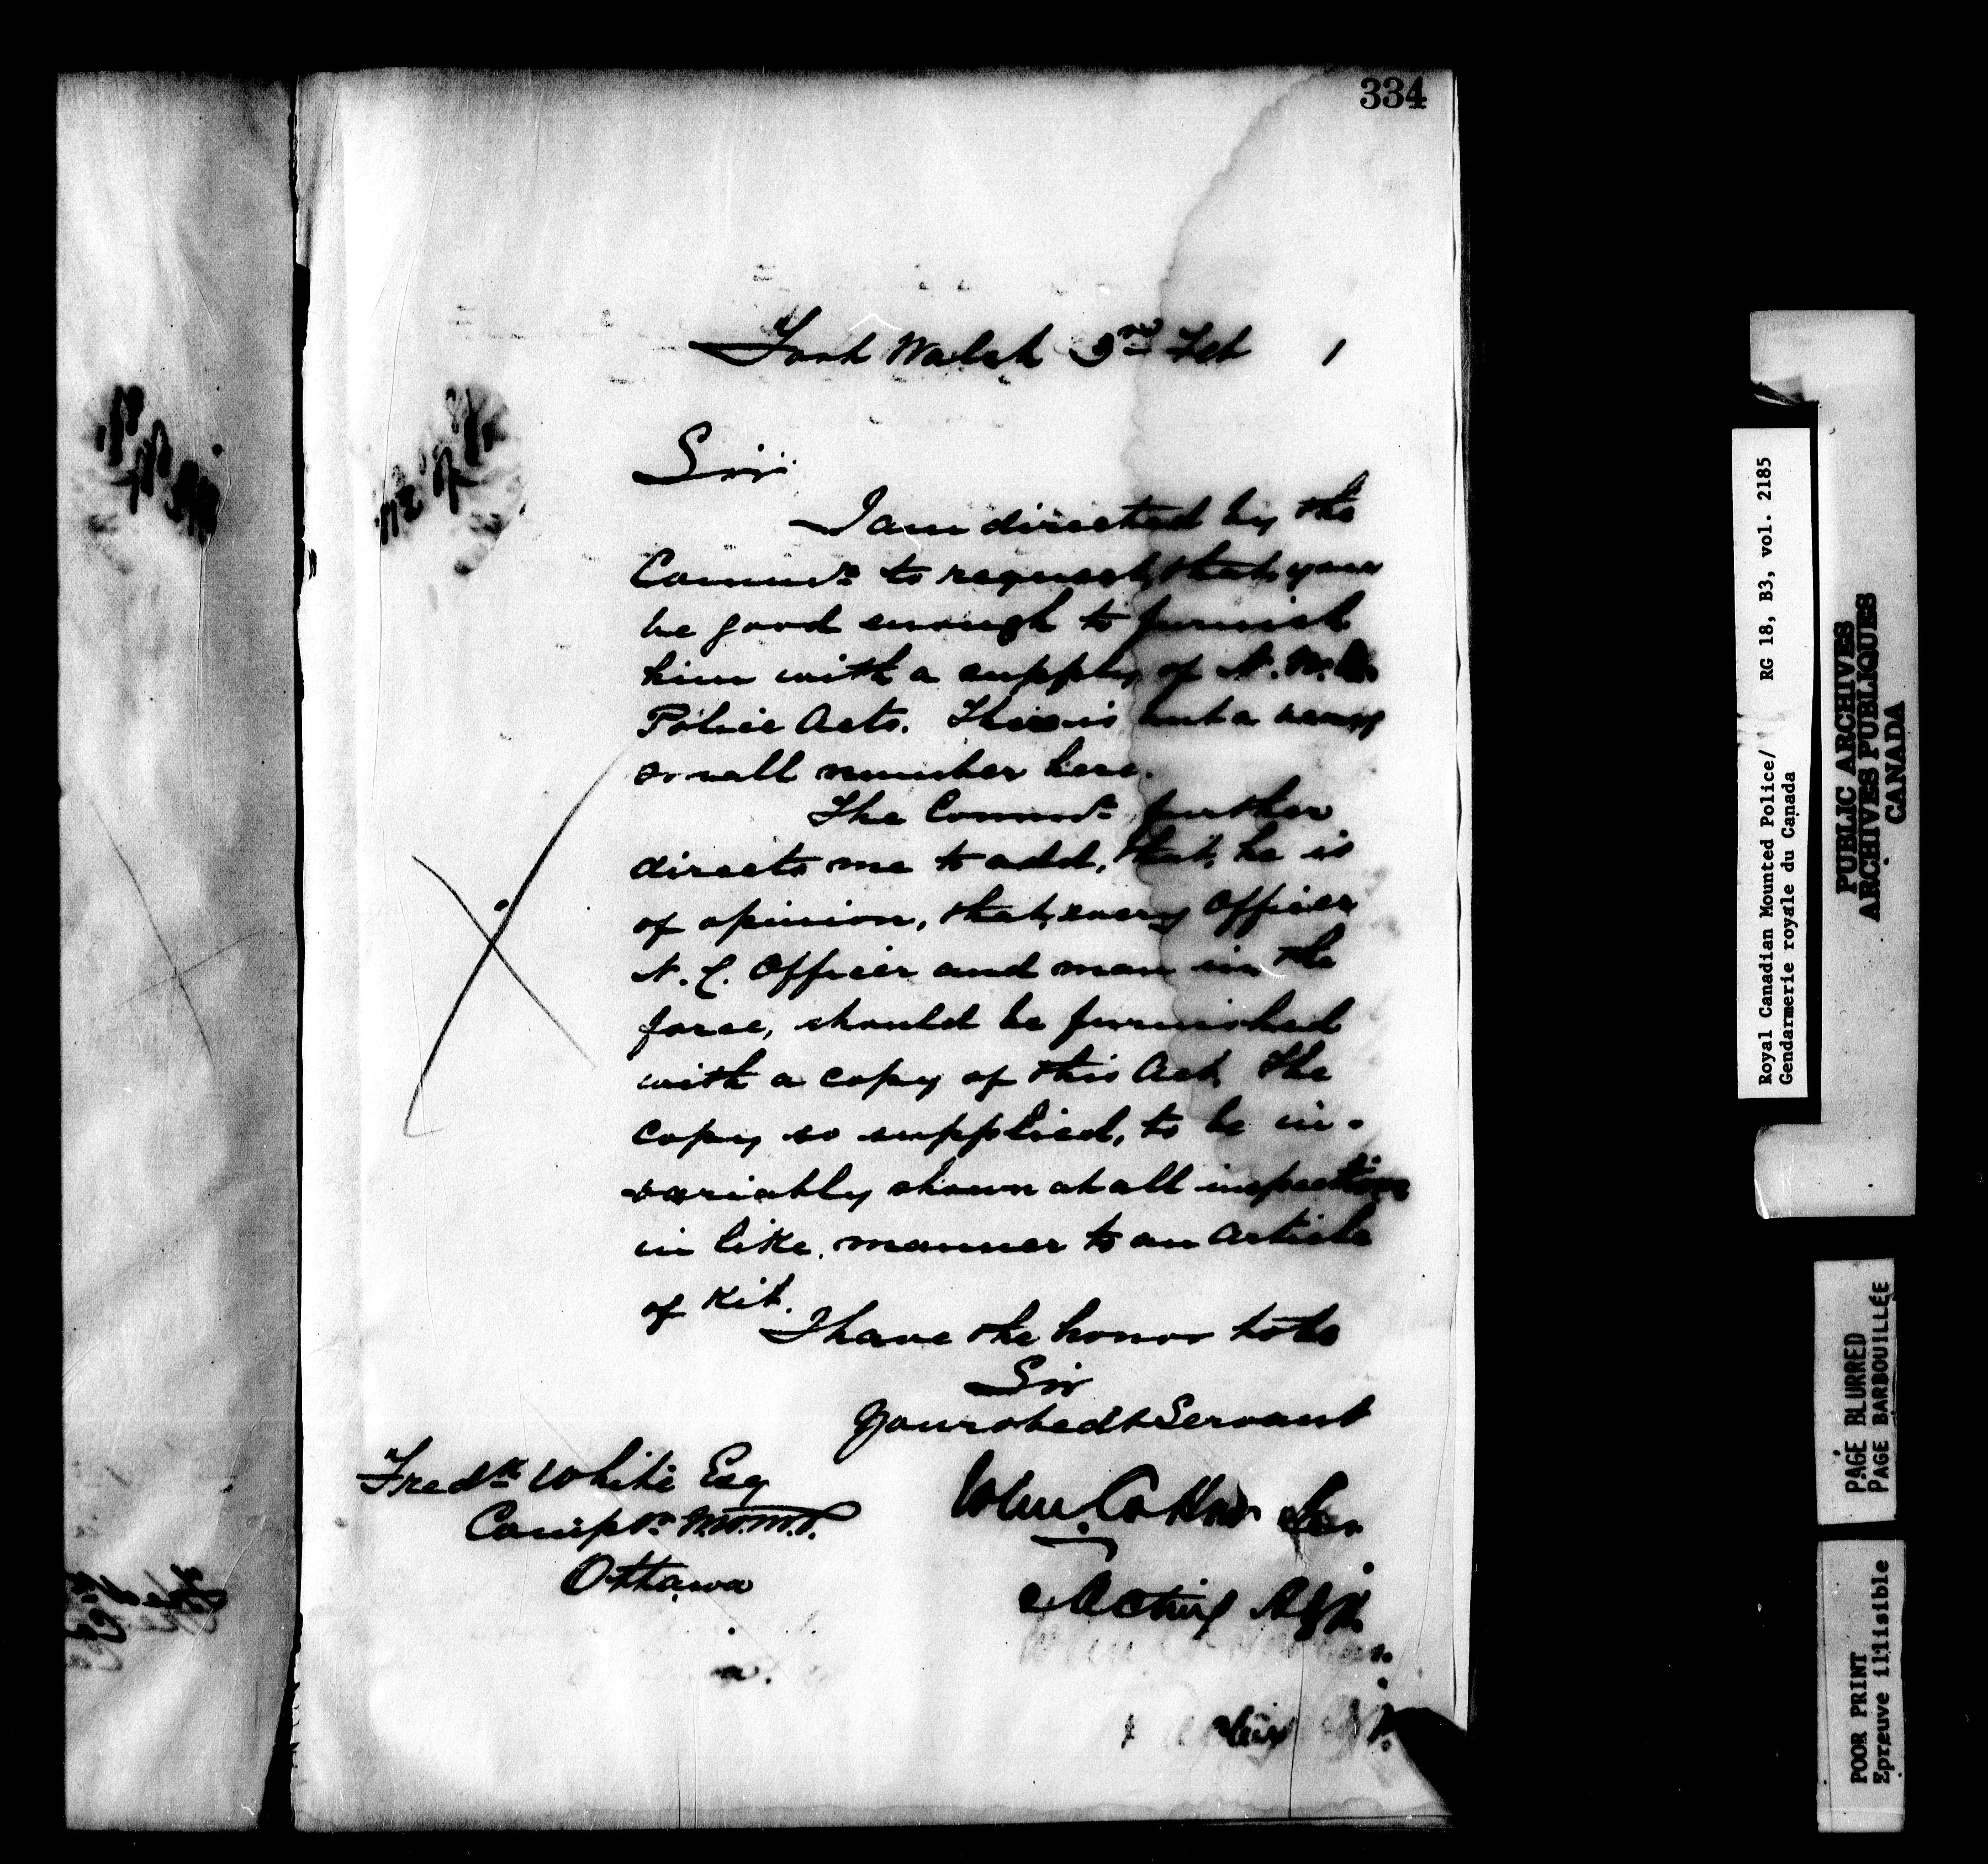 334
Fort Walsh 3rd Feb 1
Sir
I am directed by the
Commr to request, that, you
be good enough to furnish
him with a supply of N. W. M.
Police Acts. There is but a very
small number here.
The Commr further
directs me to add, that, he is
of opinion, that, every Officer
N. C. Officer and man in the
force, should be furnished
with a copy of this Act. The
copy so supplied, to be in-
variably shown at all inspections
in like manner to an article
of Kit.
I have the honor to be
Sir
Your obedt Servant
Fredk White Esq
Compr N.W.M.P.
Ottawa
Acting Adjt.
Royal Canadian Mounted Police/ RG 18, B3, vol. 2185
Gendarmerie royale du Canada
PUBLIC ARCHIVES
ARCHIVES PUBLIQUES
CANADA
PAGE BLURRED
PAGE BARBOUILLÉE
POOR PRINT
Epreuve illisible